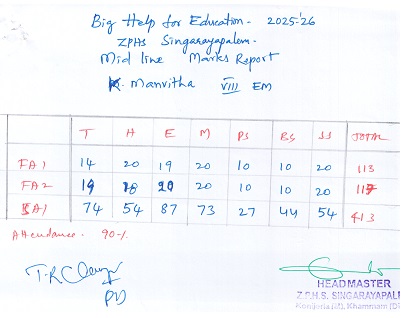 Big Help for Education - 2025-26
ZPHS Singarayapalem -
Mid line Marks Report
K. Manvitha VIII EM
T H E M PS BS SS TOTAL
FA1 14 20 19 20 10 10 20 113
FA2 19 18 20 20 10 10 20 117
SA1 74 54 87 73 27 44 54 413
Attendance - 90%
HEADMASTER
Z.P.H.S. SINGARAYAPALE
Khammam